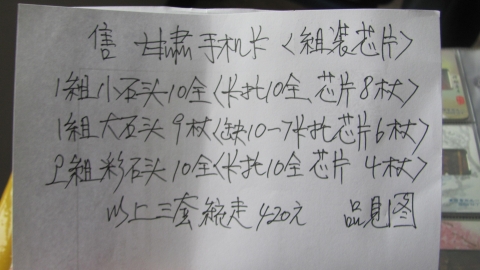 售 甘肃手机卡〈組装芯片〉
1組小石头10全〈卡托10全、芯片8杖〉
1組大石头9杖〈缺10-7卡托芯片6杖〉
2組彩石头10全〈卡托10全芯片 4杖〉
以上三套統走420元 品見图